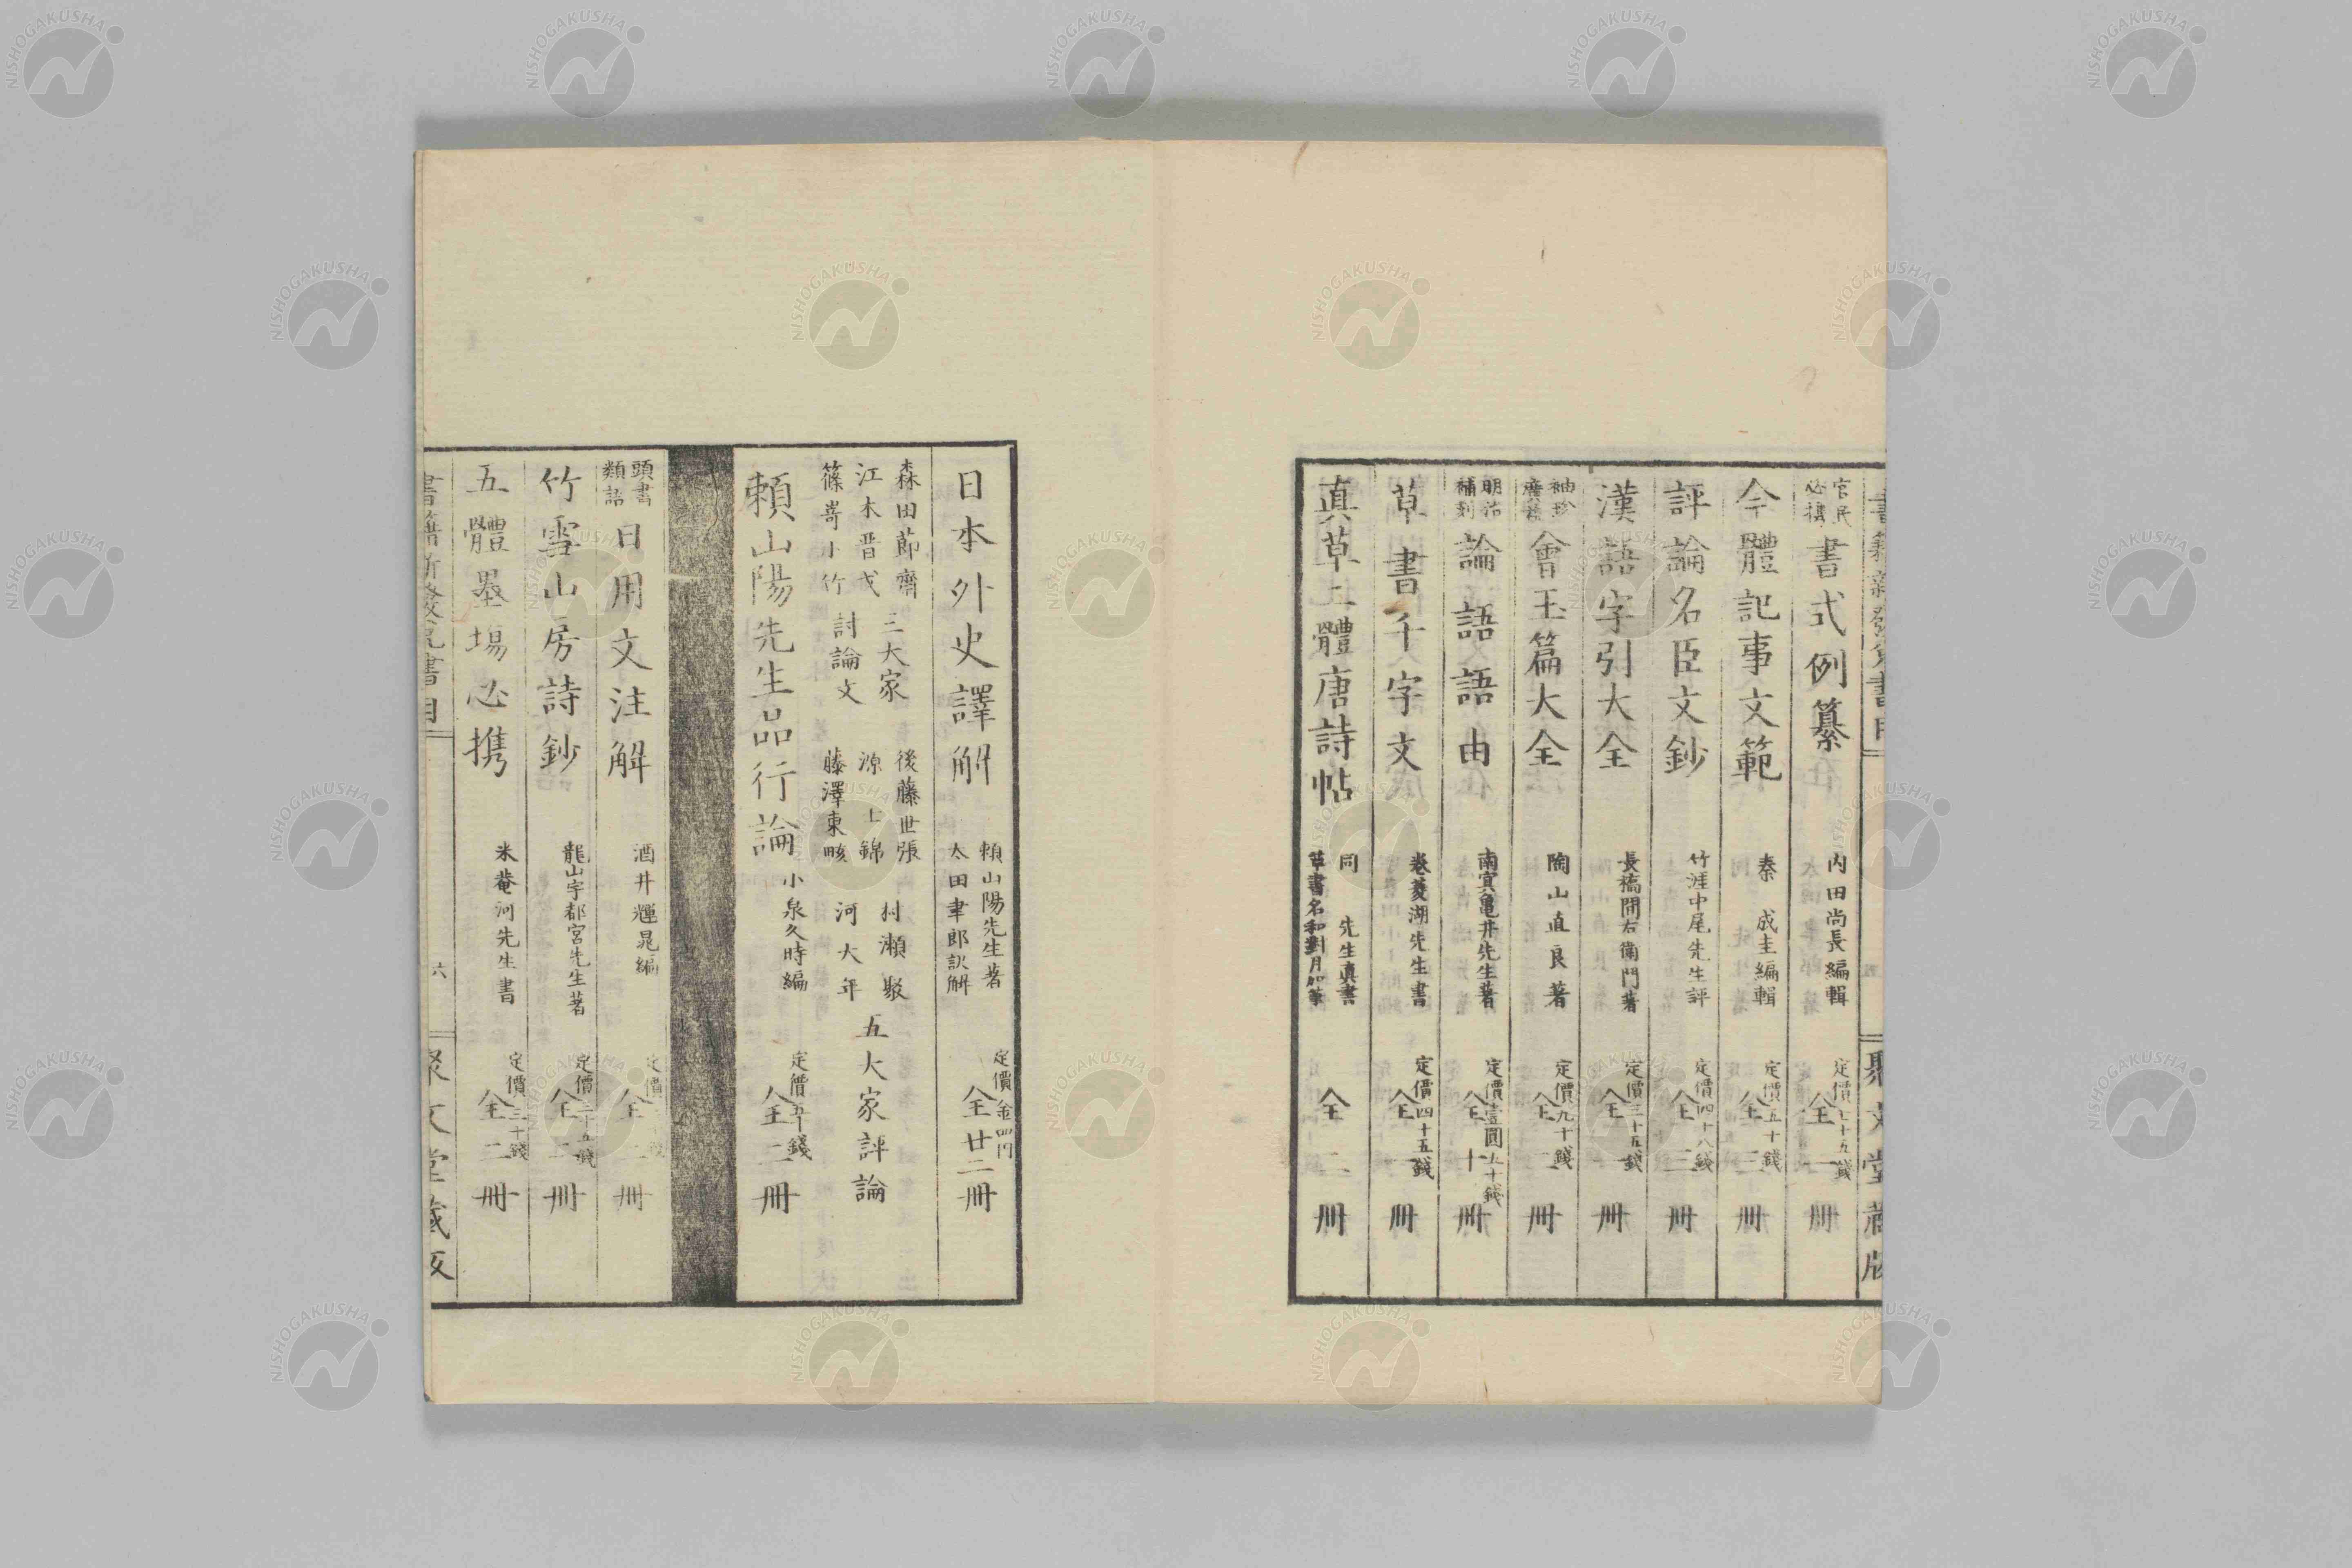 官民必携 書式例纂 内田尚長編輯 定價七十五錢 全一冊
今體記事文範 秦 成主編輯 定價五十錢 全三冊
評論名臣文鈔 竹涯中尾先生評 定價四十八錢 全三冊
漢語字引大全 長橋間右衛門著 定價三十五錢 全一冊
袖珍廣益 會玉篇大全 陶山直良著 定價九十錢 全二冊
明治補刻 論語語由 南冥亀井先生著 定價壹圓五十錢 全十冊
草書千字文 卷菱湖先生書 定價四十五錢 全一冊
真草二體唐詩帖 同 先生真書 草書名和對月 全二冊
日本外史譯解 頼山陽先生著 太田聿郎訳解 定價金四円 全廿二冊
森田節齋 江木晋戈 篠嵜小竹 三大家討論文
後藤世張 源士錦 藤澤東畡 村瀬 河大年 五大家評論
頼山陽先生品行論 小泉久時編 定價五十錢 全二冊
頭書類語 日用文注解 酒井輝晁編 定價 錢 全二冊
竹雪山房詩鈔 龍山宇都宮先生著 定價三十五錢 全二冊
五體墨場必携 米菴河先生書 定價三十錢 全二冊
書籍 書目 六 聚文堂藏版